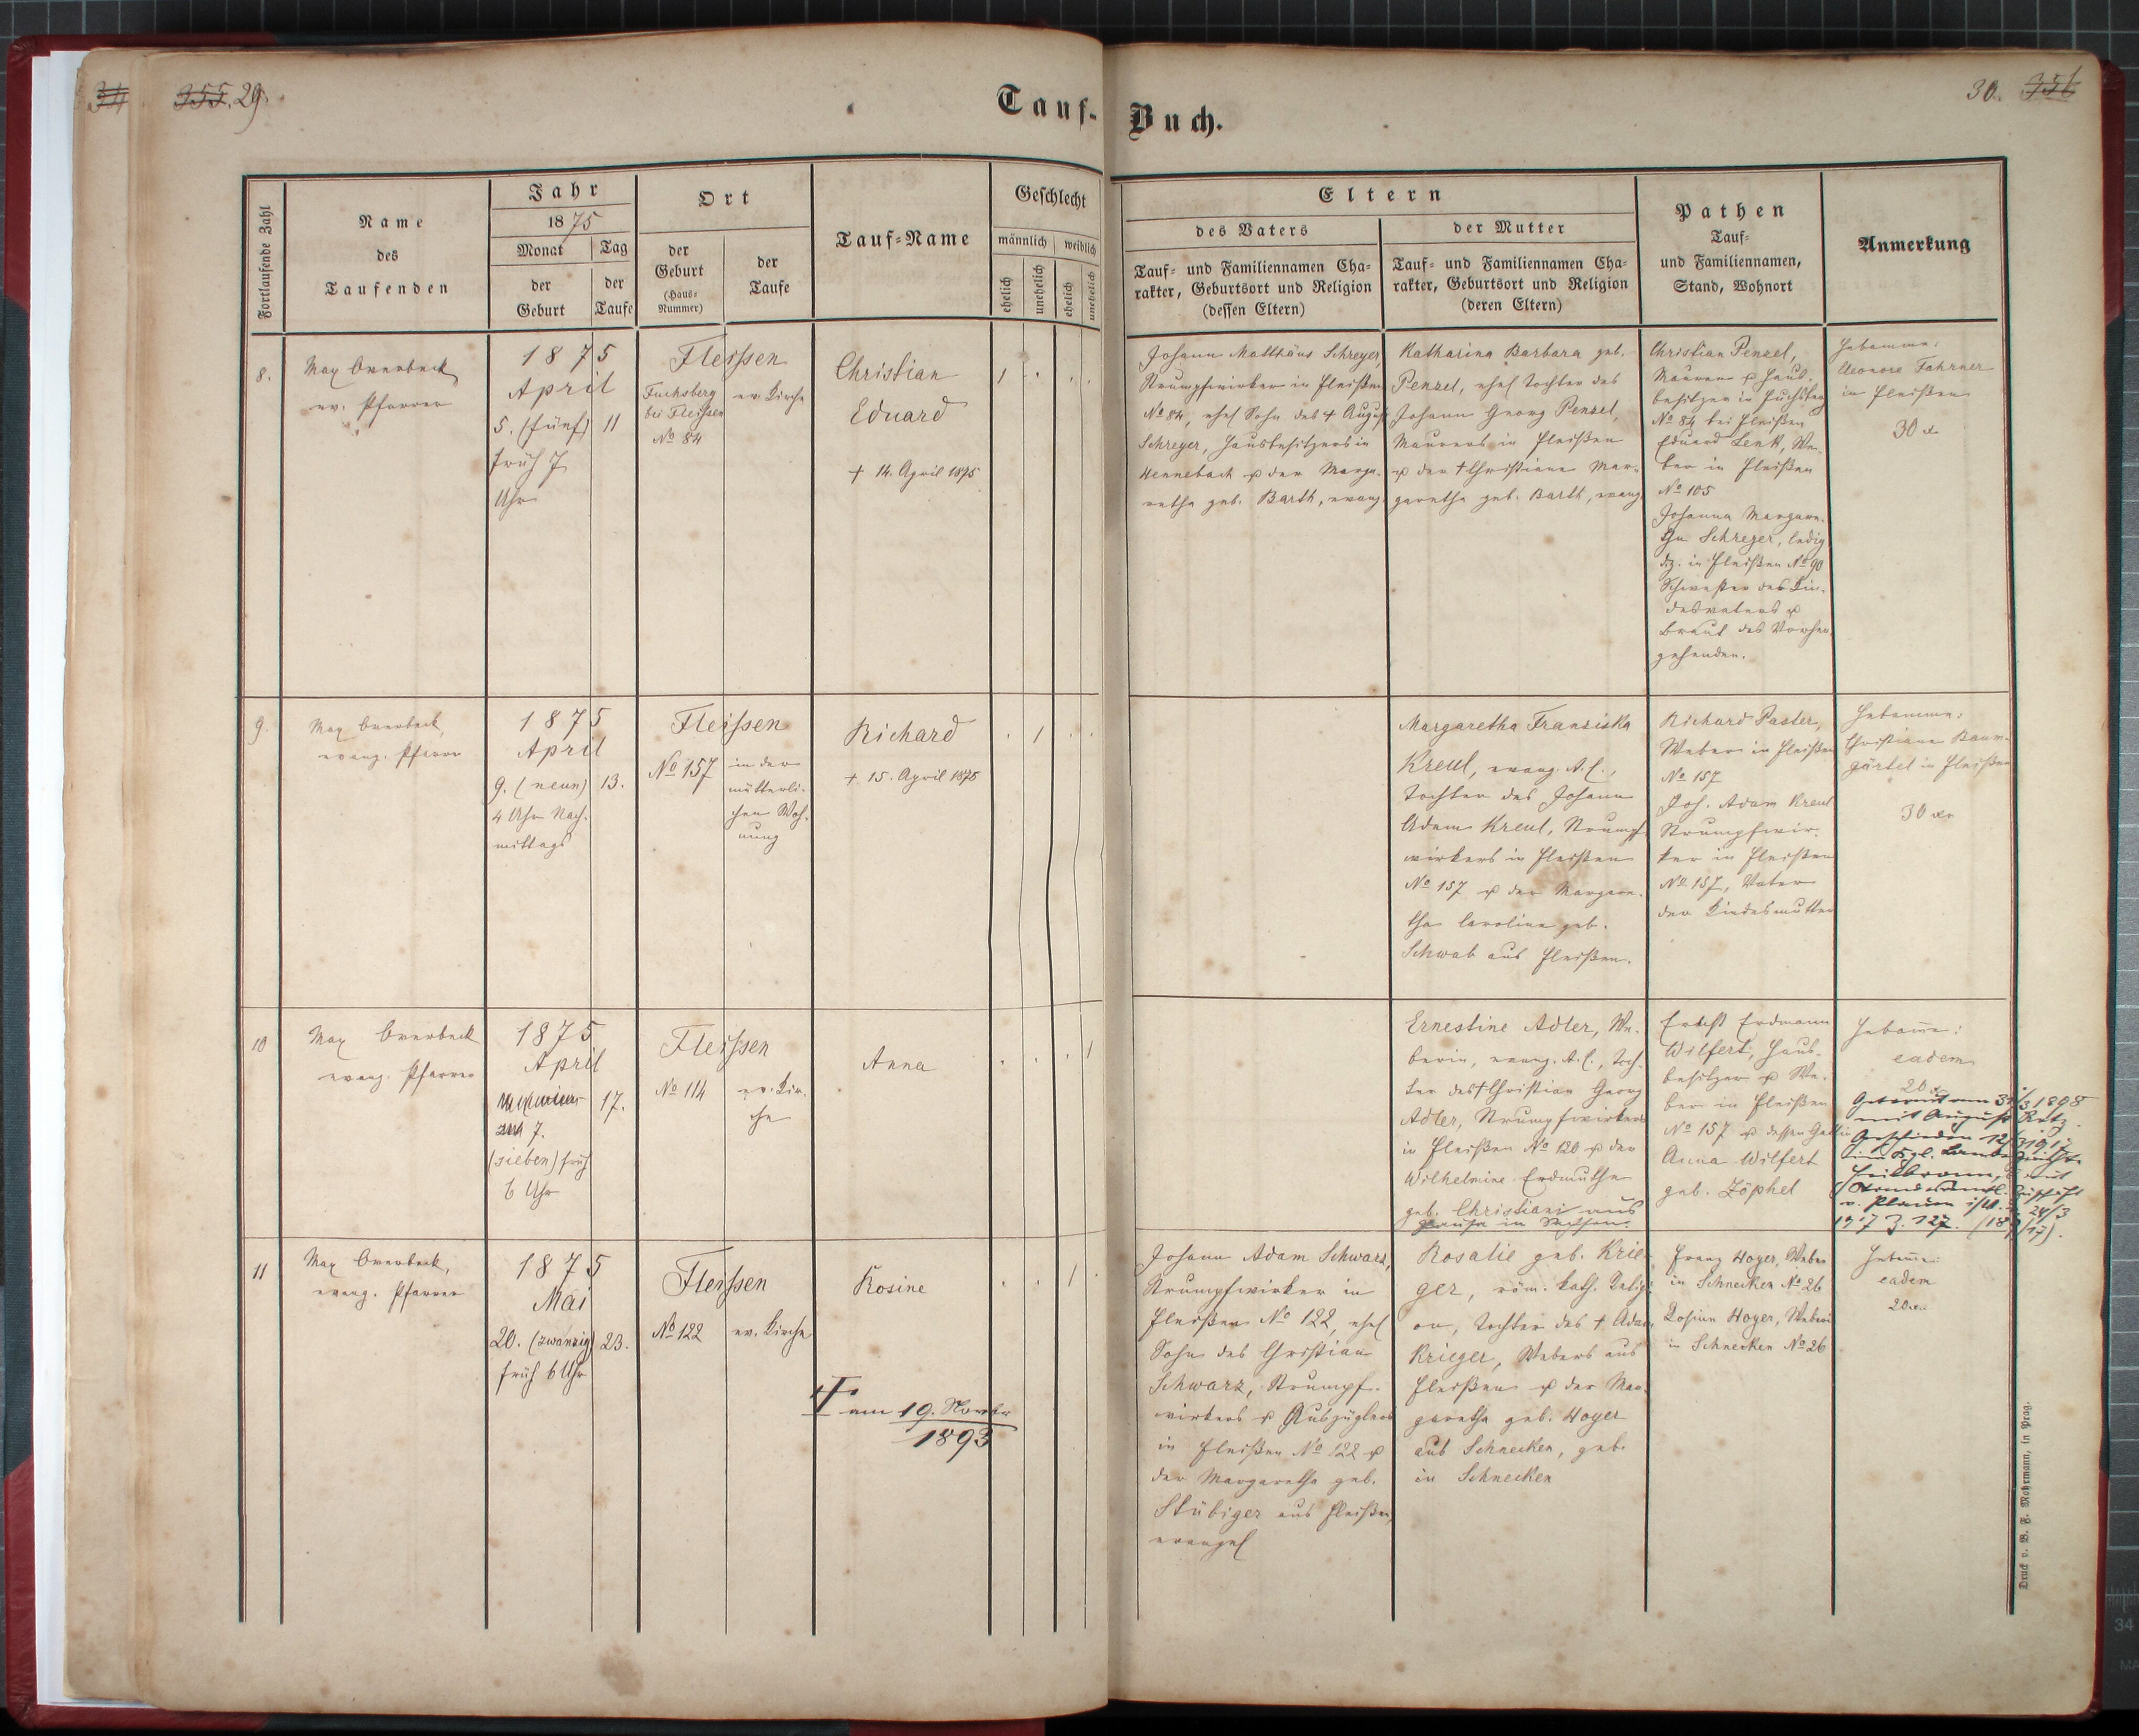 355. 29.
Tauf-
Fortlaufende Zahl
Name
des
Taufenden
Jahr
1875
Monat
Tag
der
Geburt
der
Taufe
Ort
der
Geburt
(Haus-
Nummer)
der
Taufe
Tauf-Name
Geschlecht
männlich
weiblich
ehelich
unehelich
ehelich
unehelich
8.
Max Overbeck
ev. Pfarrer
1875
April
5. (fünf)
früh 7
Uhr
11
Fleissen
Fuchsberg
bei Fleissen
No 84
ev. Kirche
Christian
Eduard
+ 14. April 1875
1
9.
Max Overbeck,
evang. Pfarrer
1875
April
9. (neun)
4 Uhr Nach-
mittags
13.
Fleissen
No 157
in der
mütterli-
chen Woh-
nung
Richard
+ 15. April 1875
1
10
Max Overbeck
evang. Pfarrer
1875
April
7.
(sieben) früh
6 Uhr
17.
Fleissen
No 114
ev. Kir-
che
Anna
1
11
Max Overbeck,
evang. Pfarrer
1875
Mai
20. (zwanzig)
früh 6 Uhr
23.
Fleissen
No 122
ev. Kirche
Rosine
1
+ am 19. Novbr
1893
30. 356
Buch.
Eltern
des Vaters
Tauf- und Familiennamen Cha-
rakter, Geburtsort und Religion
(dessen Eltern)
der Mutter
Tauf- und Familiennamen Cha-
rakter, Geburtsort und Religion
(deren Eltern)
Pathen
Tauf-
und Familiennamen,
Stand, Wohnort
Anmerkung
Johann Matthäus Schreyer,
Strumpfwirker in Fleißen
No 84, ehel Sohn des + August
Schreyer, Hausbesitzers in
Hennebach u der Marga-
retha geb. Barth, evang.
Katharina Barbara geb.
Penzel, ehel Tochter des
Johann Georg Penzel,
Maurers in Fleißen
u der + Christiane Mar-
garetha geb. Barth, evang
Christian Penzel,
Maurer u Haus-
besitzer in Fuchsberg
No 84 bei Fleißen
Eduard Lenk, We-
ber in Fleißen
No 105
Johanna Margare-
tha Schreyer, ledig
dz. in Fleißen No 90
Schwester des Kin-
desvaters u
Braut des Vorher-
gehenden.
Hebamme:
Eleonore Fahrner
in Fleißen
30 x
Margaretha Franziska
Kreul, evang. A.C.,
Tochter des Johann
Adam Kreul, Strumpf-
wirkers in Fleißen
No 157 u der Margare-
tha Caroline geb.
Schwab aus Fleißen.
Richard Paster,
Weber in Fleißen
No 157
Joh. Adam Kreul
Strumpfwir-
ker in Fleißen
No 157, Vater
der Kindesmutter
Hebamme:
Christiane Baum-
gärtel in Fleißen
30 xr
Ernestine Adler, We-
berin, evang. A.C., Toch-
ter des + Christian Georg
Adler, Strumpfwirkers
in Fleißen No 120 u der
Wilhelmine Erdmuthe
geb. Christiani aus
in Sachsen.
Erdmann
Wilfert, Haus-
besitzer u We-
ber in Fleißen
No 157 u dessen Gattin
Anna Wilfert
geb. Zöphel
Hebamme:
eadem
20 x
Getraut am 31/3 1898
mit August
Geschieden 12/3 1917
v. Plauen i/V. 24/3
1917 Z. 127.
Johann Adam Schwarz,
Strumpfwirker in
Fleißen No 122, ehel
Sohn des Christian
Schwarz, Strumpf-
wirkers u Auszüglers
in Fleißen No 122 u
der Margaretha geb.
Stübiger aus Fleißen,
evangel
Rosalie geb. Krie-
ger, röm. kath. Religi-
on, Tochter des + Adam
Krieger, Webers aus
Fleißen u der Mar-
garetha geb. Hoyer
aus Schnecken, geb.
in Schnecken
Franz Hoyer, Weber
in Schnecken No 26
Rosine Hoyer, Weberin
in Schnecken No 26
Hebamme:
eadem
20 xr.
Druck v. B. F. Mohrmann, in Prag.